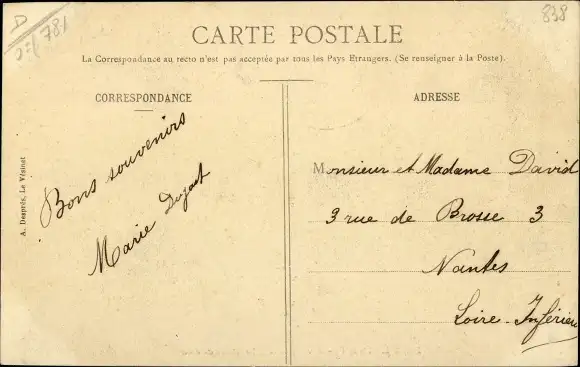 D
781
838
CARTE POSTALE
La Correspondance au recto n'est pas acceptée par tous les Pays Etrangers. (Se renseigner à la Poste).
CORRESPONDANCE
Bons souvenirs
Marie
A. Després, Le Vésinet
ADRESSE
Monsieur et Madame David
3 rue de Brosse 3
Nantes
Loire-Inférieure